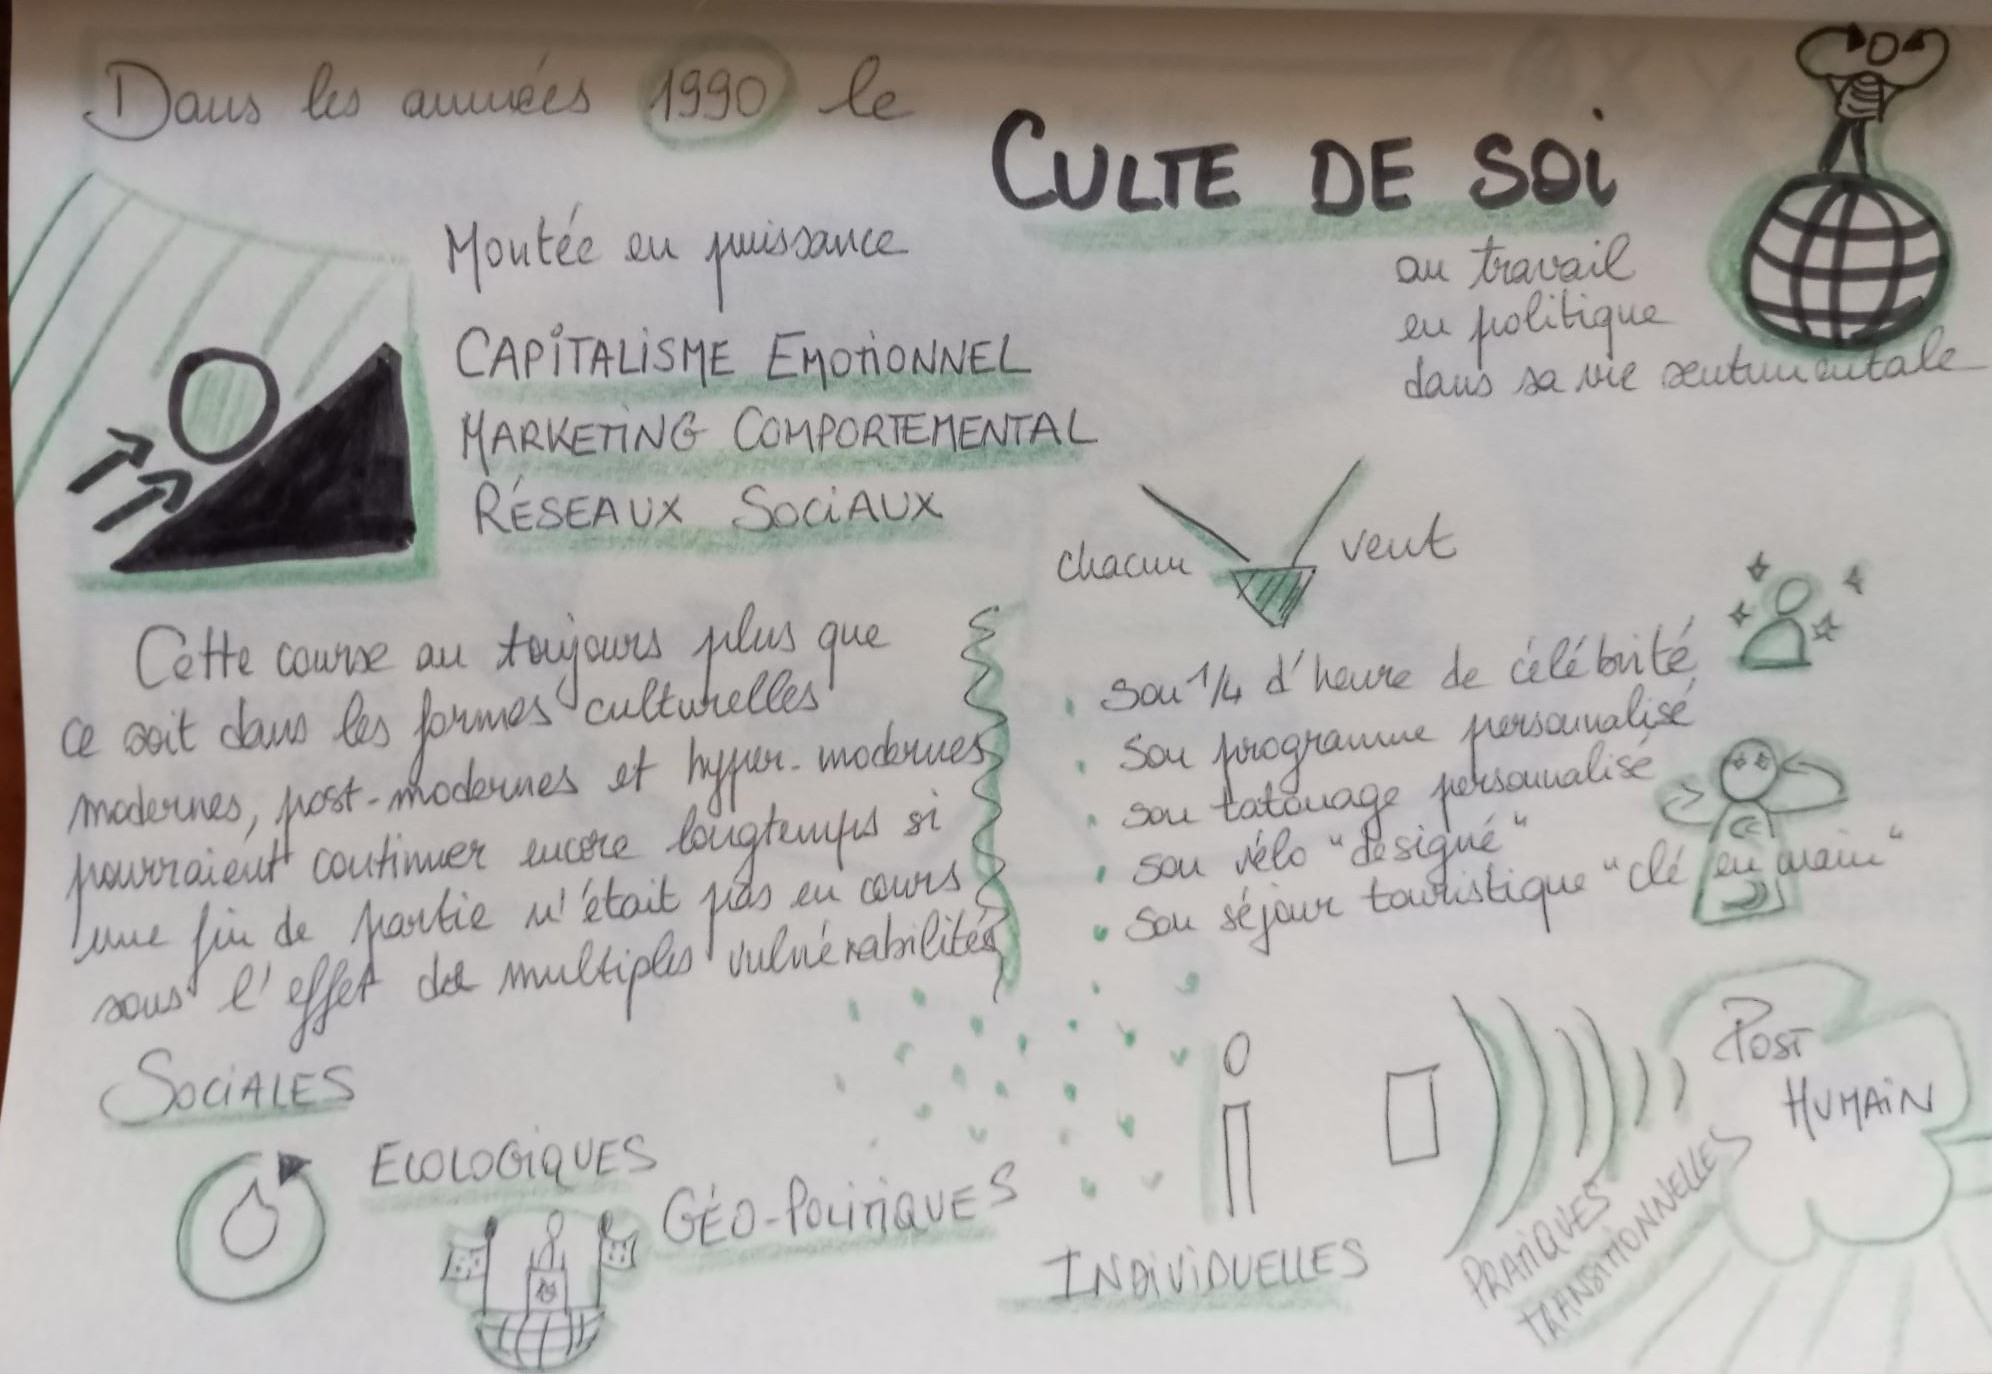 Dans les années 1990 le
CULTE DE SOi
au travail
en politique
dans sa vie sentimentale
Montée en puissance
CAPiTALiSME EMOTiONNEL
MARKETiNG COMPORTEMENTAL
RÉSEAUX SOCiAUX
chacun veut
son 1/4 d'heure de célébrité
son programme personnalisé
son tatouage personnalisé
son vélo "designé"
son séjour touristique "clé en main"
Cette course au toujours plus que
ce soit dans les formes culturelles
modernes, post-modernes et hyper-modernes
pourraient continuer encore longtemps si
une fin de partie n'était pas en cours
sous l'effet de multiples vulnérabilités
SOCiALES
ECOLOGiQUES
GÉO-POLiTiQUES
INDiViDUELLES
PRATiQUES
TRANSiTiONNELLES
POST
HUMAiN